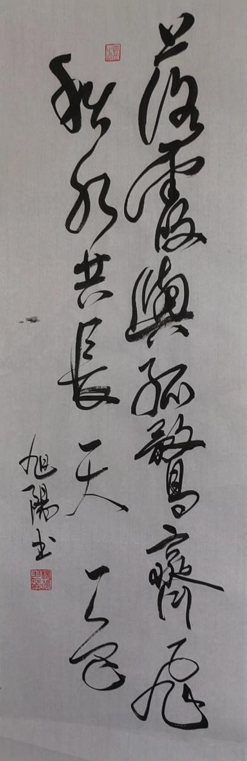 落霞與孤鶩齊飛
秋水共長天一色
旭陽書